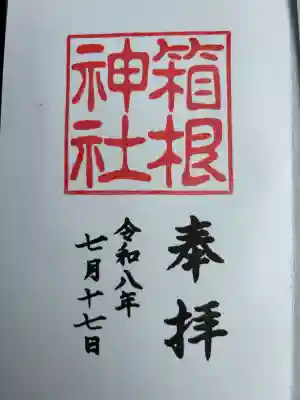 箱根
神社
奉拝
令和八年
七月十七日